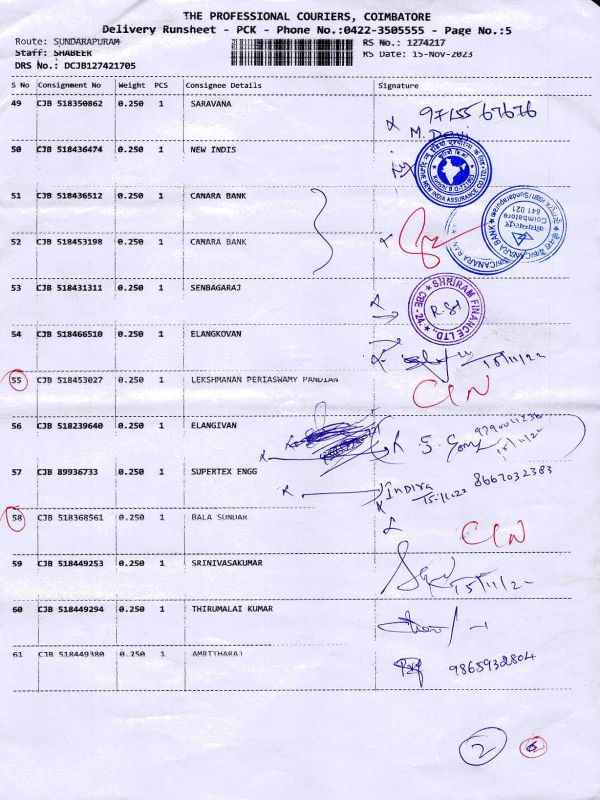 THE PROFESSIONAL COURIERS, COIMBATORE
Delivery Runsheet - PCK - Phone No.:0422-3505555 - Page No.:5
Route: SUNDARAPURAM RS No.: 1274217
Staff: SHABEER RS Date: 15-Nov-2023
DRS No.: DCJB127421705
S No Consignment No Weight PCS Consignee Details Signature
49 CJB 518350862 0.250 1 SARAVANA 9715567676
M. Devi
50 CJB 518436474 0.250 1 NEW INDIS
NEW INDIA ASSURANCE
51 CJB 518436512 0.250 1 CANARA BANK
CANARA BANK Coimbatore 641 021
52 CJB 518453198 0.250 1 CANARA BANK
53 CJB 518431311 0.250 1 SENBAGARAJ
SHRIRAM FINANCE LTD. CBE - 24
54 CJB 518466510 0.250 1 ELANGKOVAN
55 CJB 518453027 0.250 1 LEKSHMANAN PERIASWAMY PANDIAN CIN
56 CJB 518239640 0.250 1 ELANGIVAN
57 CJB 89936733 0.250 1 SUPERTEX ENGG Indira 8667032383
15-11-23
58 CJB 518368561 0.250 1 BALA SUNDAR CIN
59 CJB 518449253 0.250 1 SRINIVASAKUMAR
60 CJB 518449294 0.250 1 THIRUMALAI KUMAR
61 CJB 518449380 0.250 1 AMRITHARAJ 9865932804
2